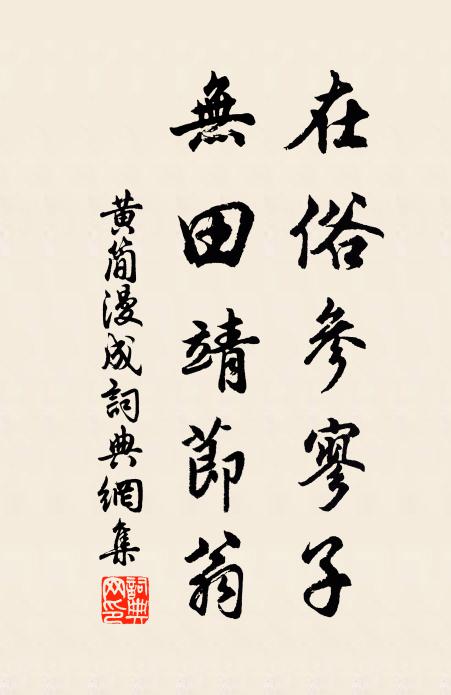 在俗參寥子
無田靖節翁
黄簡漫成詞典網集
詞典網印